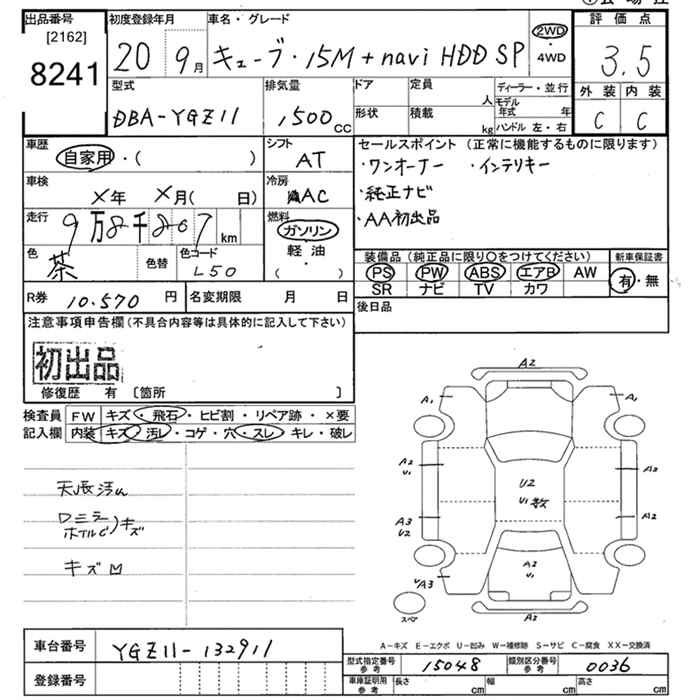 出品番号 初度登録年月 車名・グレード 評価点
[2162] 20 9月 キューブ・15M+navi HDD SP 2WD・4WD 3.5
8241
型式 排気量 ドア 定員 人 ディーラー・並行 外装 内装
DBA-YGZ11 1,500cc 形状 積載 kg モデル年式 年 C C
ハンドル 左・右
車歴 シフト セールスポイント (正常に機能するものに限ります)
自家用・( ) AT ・ワンオーナー ・インテリキー
車検 冷房 ・純正ナビ
×年 ×月( 日) AC ・AA初出品
走行 9万8千807km 燃料 ガソリン
軽油
・( )
色 茶 色替 色コード L50
装備品 (純正品に限り〇をつけてください) 新車保証書
PS PW ABS エアB AW 有・無
SR ナビ TV カワ
R券 10.570円 名変期限 月 日 後日品
注意事項申告欄(不具合内容等は具体的に記入して下さい)
初出品
修復歴 有 〔箇所 〕
検査員 FW キズ・飛石・ヒビ割・リペア跡・×要
記入欄 内装 キズ・汚レ・コゲ・穴・スレ・キレ・破レ
キズ
キズ
A2
A1 A1
A2 A2
U1
U2
U1
A3 A2
U2
A2
U1
A3
スペア
A2
A-キズ E-エクボ U-凹み W-補修跡 S-サビ C-腐食 XX-交換済
車台番号 YGZ11-132911
登録番号
型式指定番号 参考 15048 類別区分番号 参考 0036
車庫証明用 参考 長さ cm 幅 cm 高さ cm